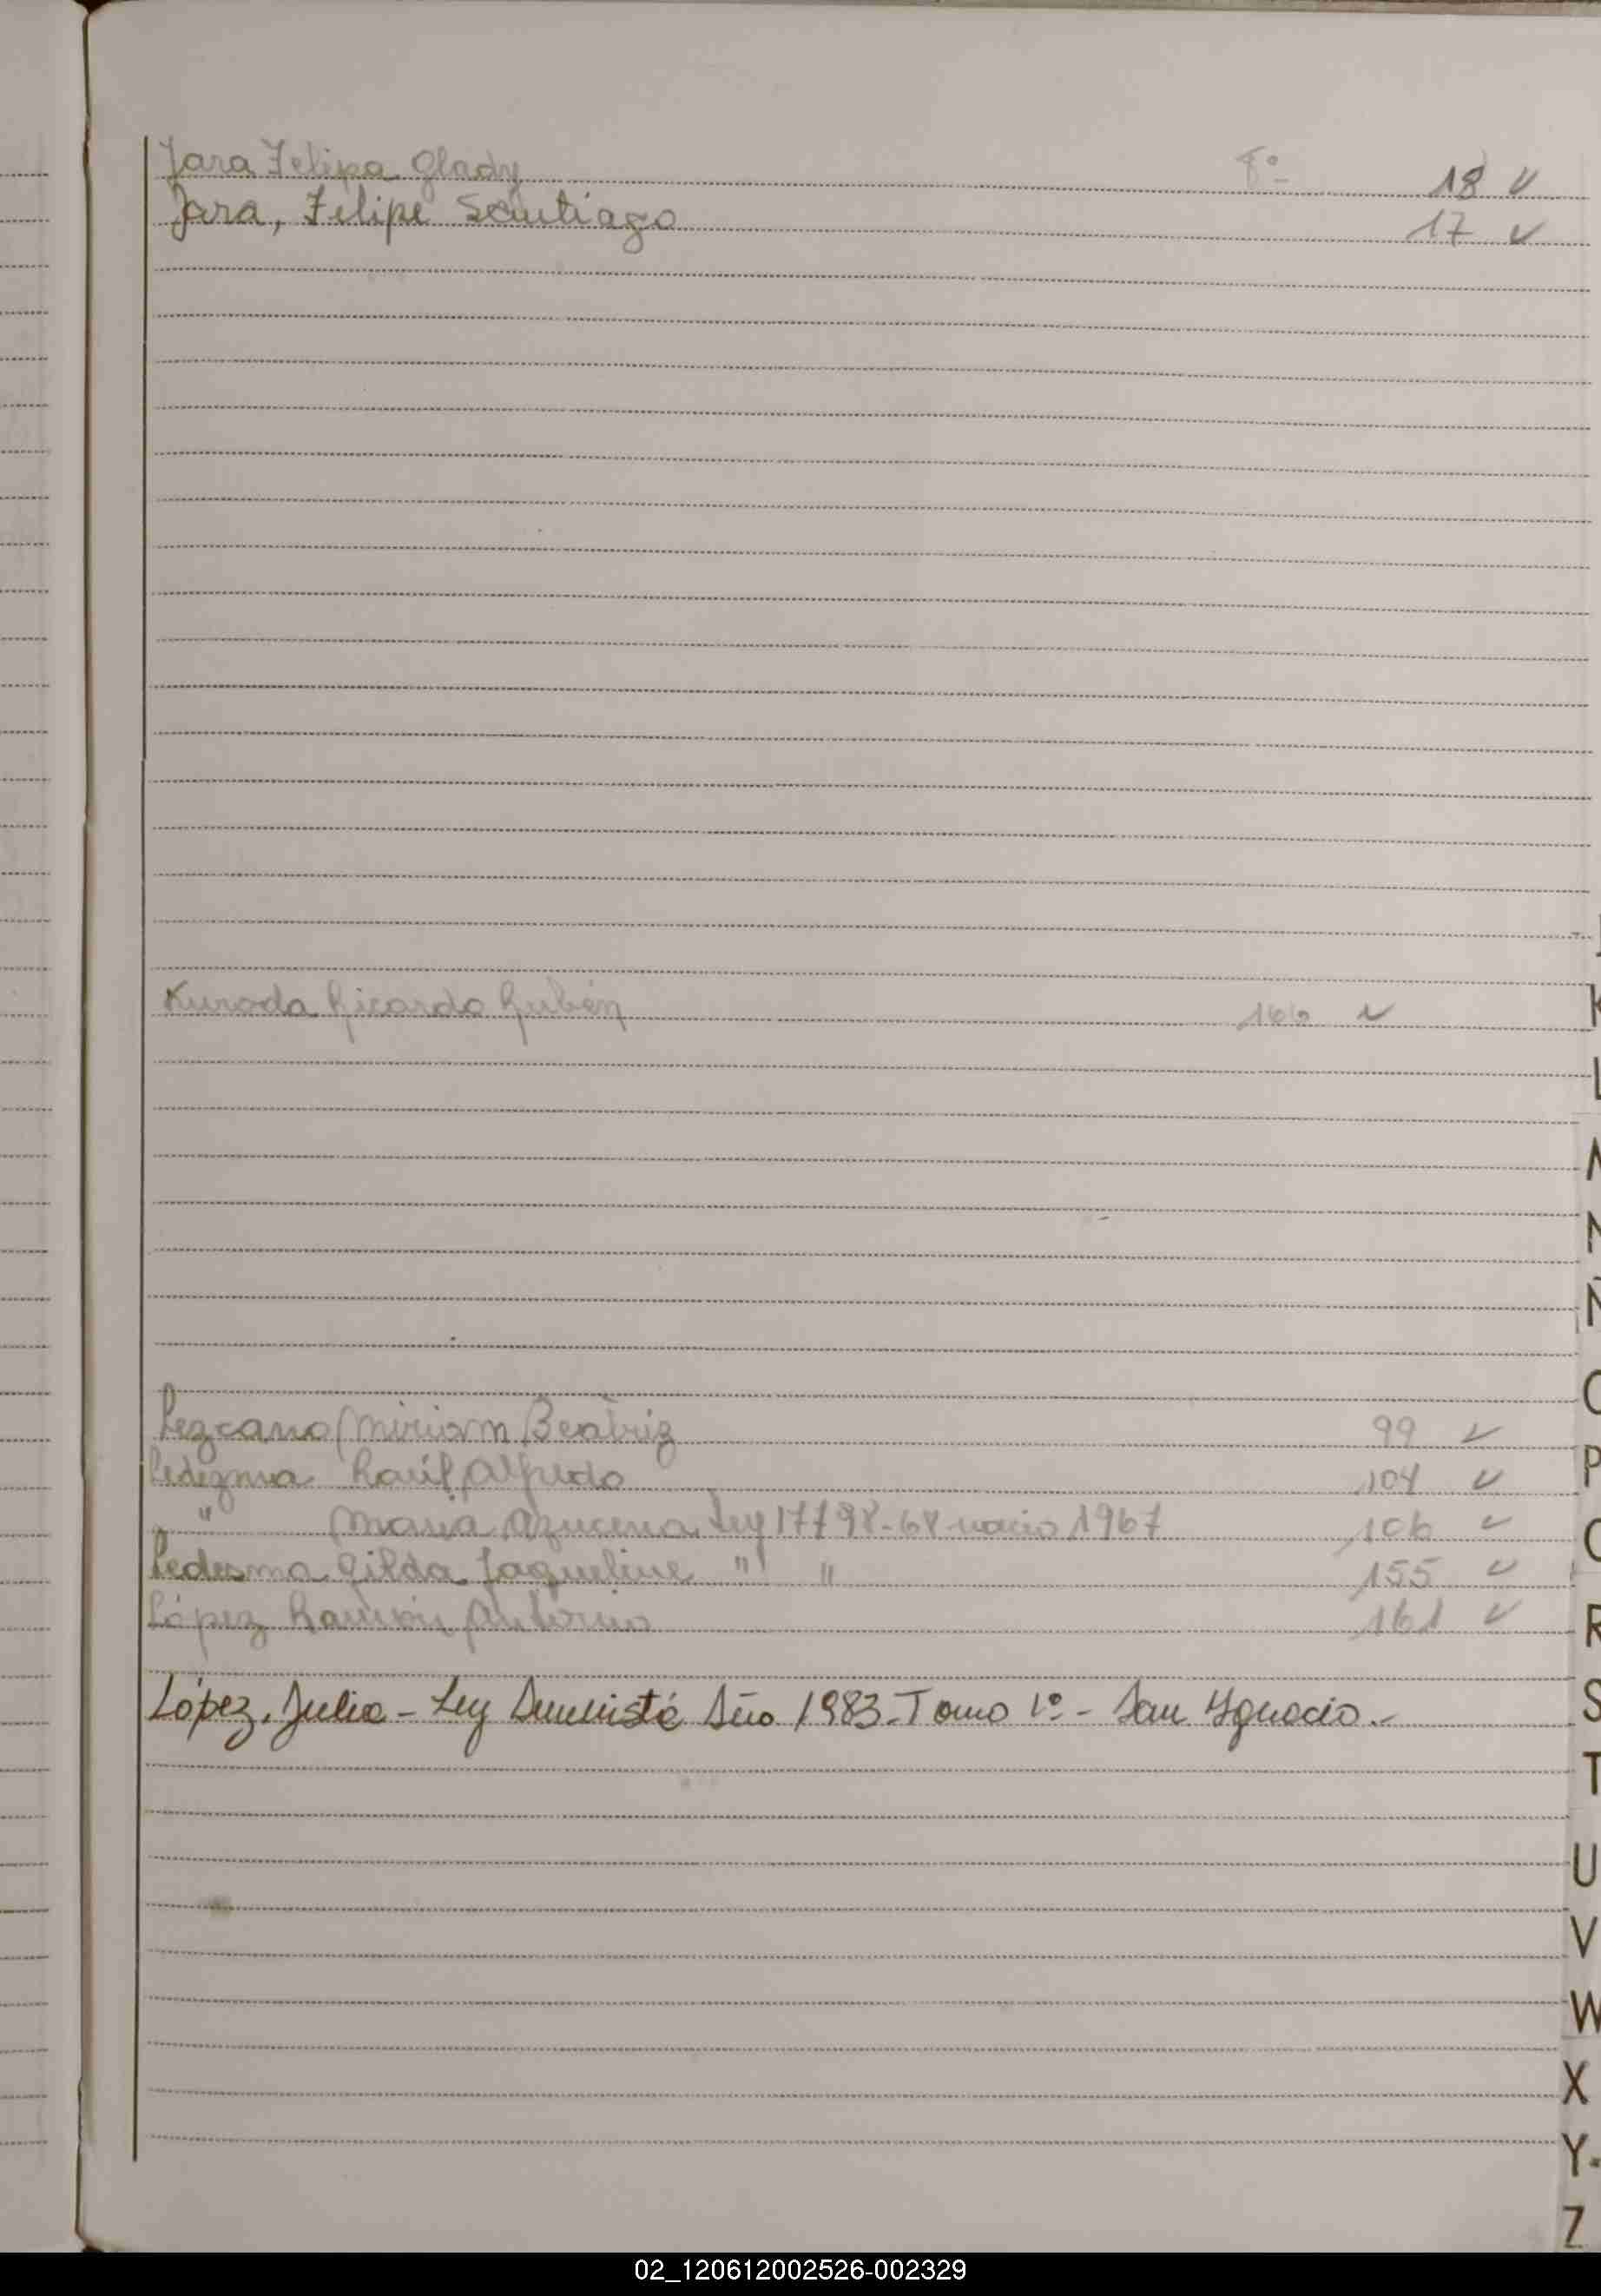 Jara Felipa Glady 8º 18 ✓
Jara, Felipe Santiago 17 ✓
Kuroda Ricardo Rubén 166 ✓
Lezcano Miriam Beatriz 99 ✓
Ledezma Raúl Alfredo 104 ✓
" Maria Azucena Ley 17798-68 nacio 1967 106 ✓
Ledesma Gilda Jaqueline " " 155 ✓
López Ramón Antonio 161 ✓
López, Julio - Ley Amnistía Año 1983 - Tomo 1º - San Ygnacio.-
K
L
N
Ñ
O
P
R
S
T
U
V
W
X
Y-
Z
02_120612002526-002329